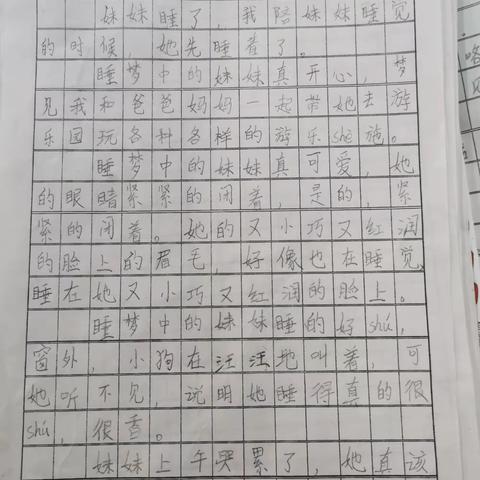 妹妹睡了，我陪妹妹睡觉
的时候，她先睡着了。
睡梦中的妹妹真开心，梦
见我和爸爸妈妈一起带她去游
乐园玩各种各样的游乐shè施。
睡梦中的妹妹真可爱，她
的眼睛紧紧的闭着，是的，紧
紧的闭着。她的又小巧又红润
的脸上的眉毛，好像也在睡觉，
睡在她又小巧又红润的脸上。
睡梦中的妹妹睡的好shú，
窗外，小狗在汪汪地叫着，可
她听不见，说明她睡得真的很
shú，很香。
妹妹上午哭累了，她真该